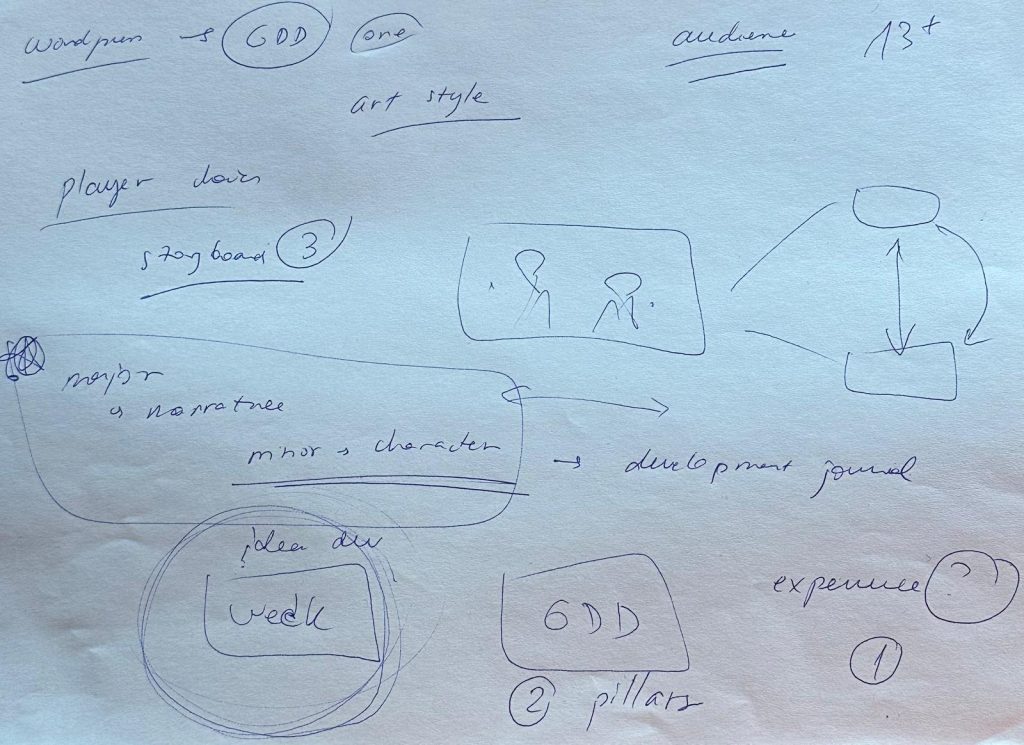 wordpress → GDD one
audience 13+
art style
player choices
storyboard 3
major
↳ narrative
minor → character → development journal
idea dev
week
GDD
experience
1
2 pillars